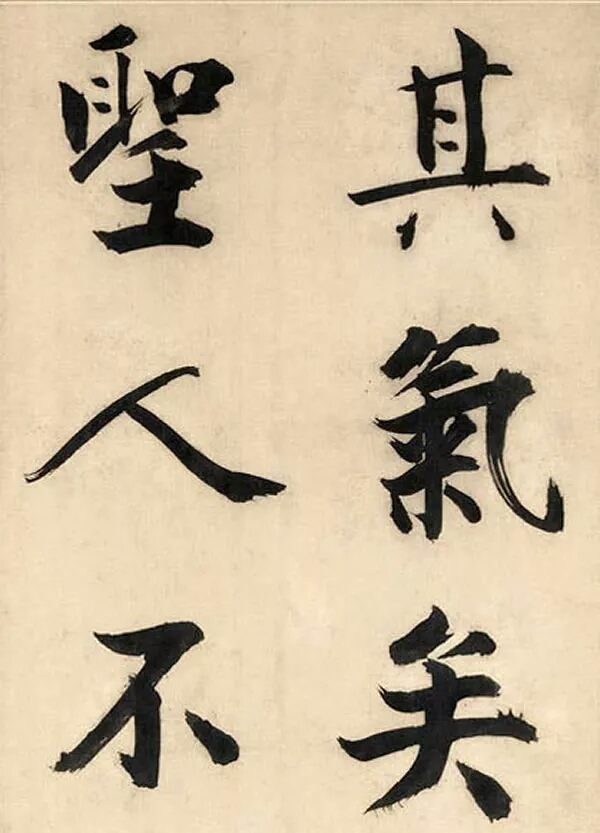 其氣矣
聖人不